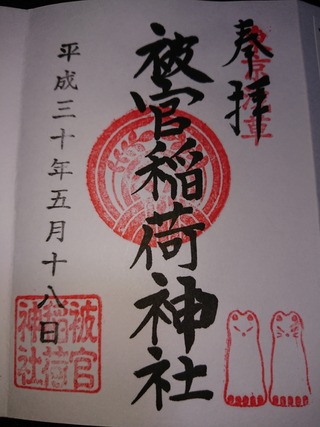 奉拝
東京浅草
被官稲荷神社
平成三十年五月十八日
被官
稲荷
神社